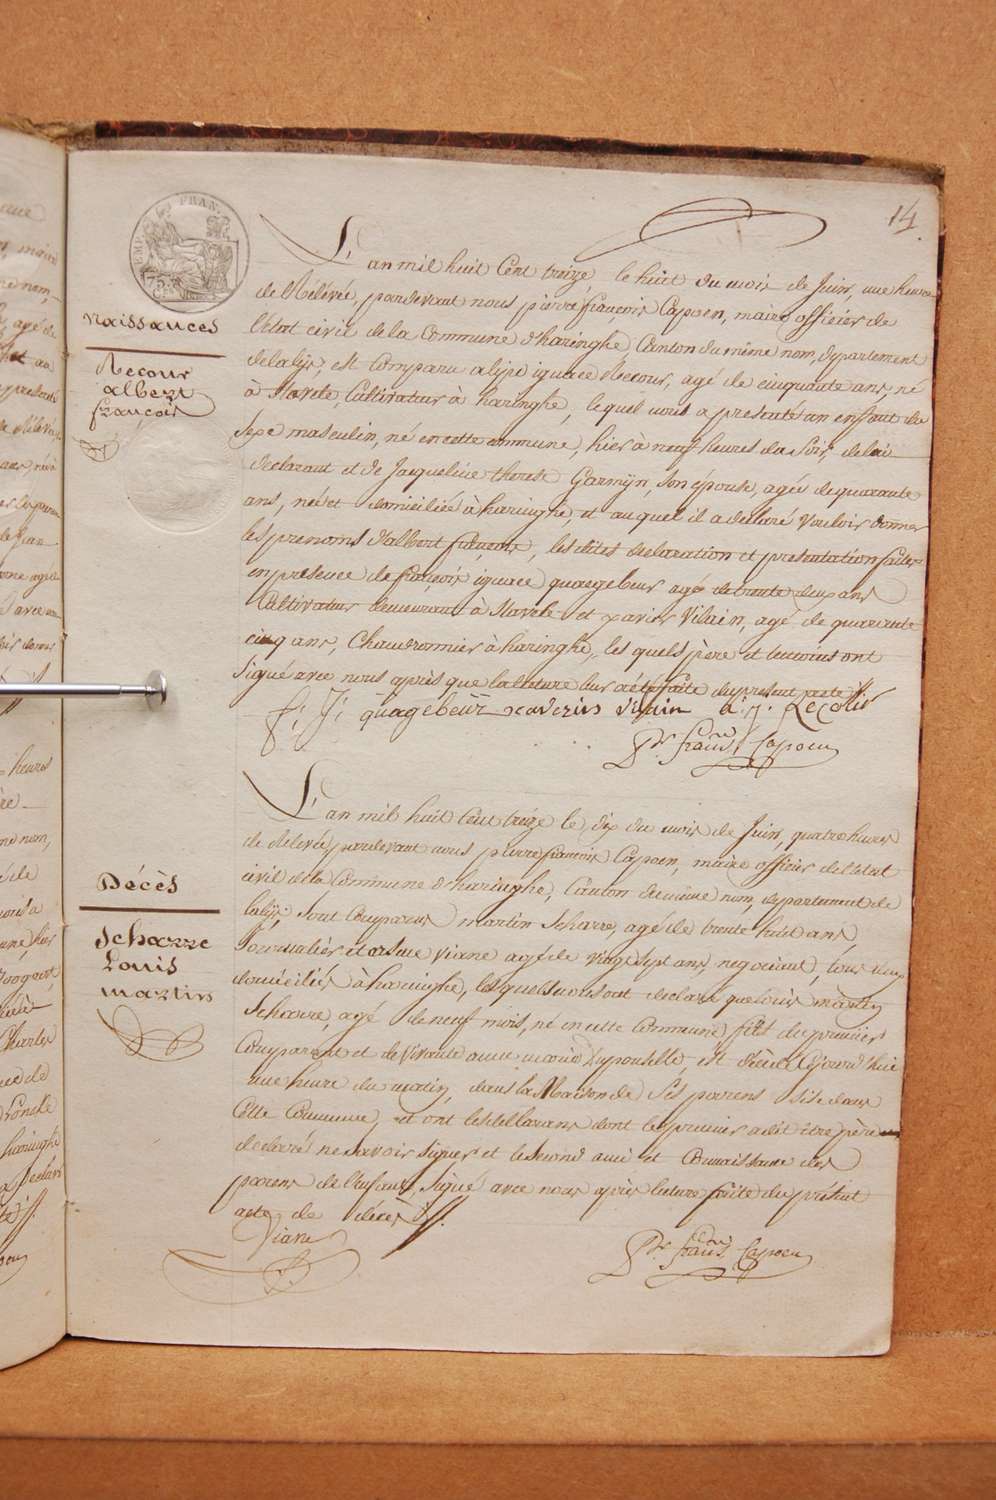 14
Naissances
Recour
albert
françois
L'an mil huit Cent treize, le huit du mois de Juin, une heure
de Relévée, pardevant nous pierre françois Capoen, maire officier de
l'état civil de la Commune d'haringhe, Canton du même nom, département
delalijs, est Comparu ignace Recour, agé de cinquante ans, né
à Stavele, Cultivateur à haringhe, lequel nous a presenté un enfant du
Sexe masculin, né en cette commune, hier à neuf heures du Soir, de lui
declarant et de Jacqueline therese Garmijn, Son épouse, agée de quarante
ans, née et domiciliée à haringhe, et auquel il a declaré vouloir donner
les prenoms d'albert françois, les dites declaration et presentation faites
en presence de françois ignace quagebeur agé de trente deux ans
Cultivateur demeurant à Stavele et xavier Vilain, agé de quarante
cinq ans, Chaudronnier à haringhe, les quels père et temoins ont
Signé avec nous après que lalecture leur a été faite du present acte
f: J: quagebeur xaverius vilain a: J: Recour
Pre. franc. Capoen
Décès
Scharre
Louis
martin
L'an mil huit Cent treize le dix du mois de Juin, quatre heures
de Relevée pardevant nous pierre françois Capoen, maire officier de l'état
civil de la Commune d'haringhe, Canton du même nom, departement de
lalijs, Sont Comparus martin Scharre, agé de trente huit ans,
Journalier et Viane agé de vingt Sept ans, negociant, tous deux
domiciliés à haringhe, lesquels nous ont declaré que louis martin
Scharre, agé de neuf mois, né en cette Commune, fils du premier
Comparant et de est décédé Cejourd'hui
une heure du matin, dans la Maison de Ses parens Sise dans
Cette Commune, et ont les declarans dont le premier a dit être père
declaré ne savoir signer et le second ami et Connaissance des
parens de l'enfant, Signé avec nous après lecture faite du présent
acte de décès
Viane
Pre. franc. Capoen